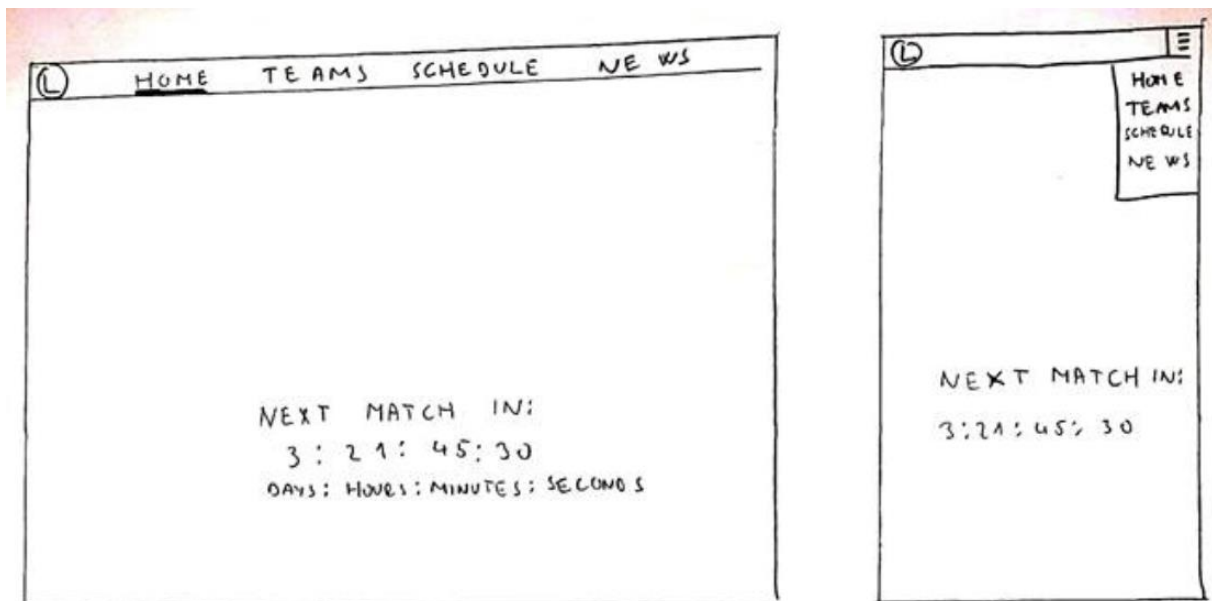 L HOME TEAMS SCHEDULE NEWS
NEXT MATCH IN:
3:21:45:30
DAYS: HOURS: MINUTES: SECONDS
L
HOME
TEAMS
SCHEDULE
NEWS
NEXT MATCH IN:
3:21:45:30